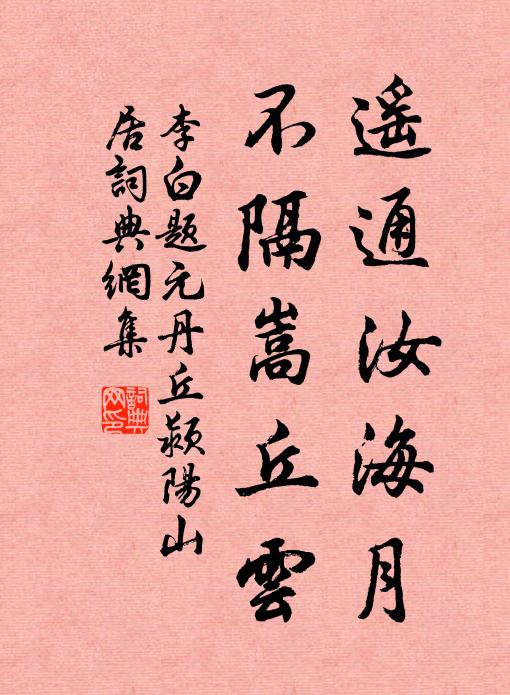 遥通汝海月
不隔嵩丘雲
李白題元丹丘潁陽山
居詞典網集
詞典
网印